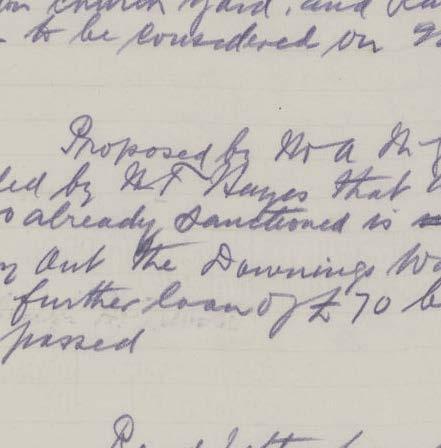 church yard, and
to be considered on
Proposed by
by Hayes that
already sanctioned is
out the Downings Wa
further loan of £70 b
passed